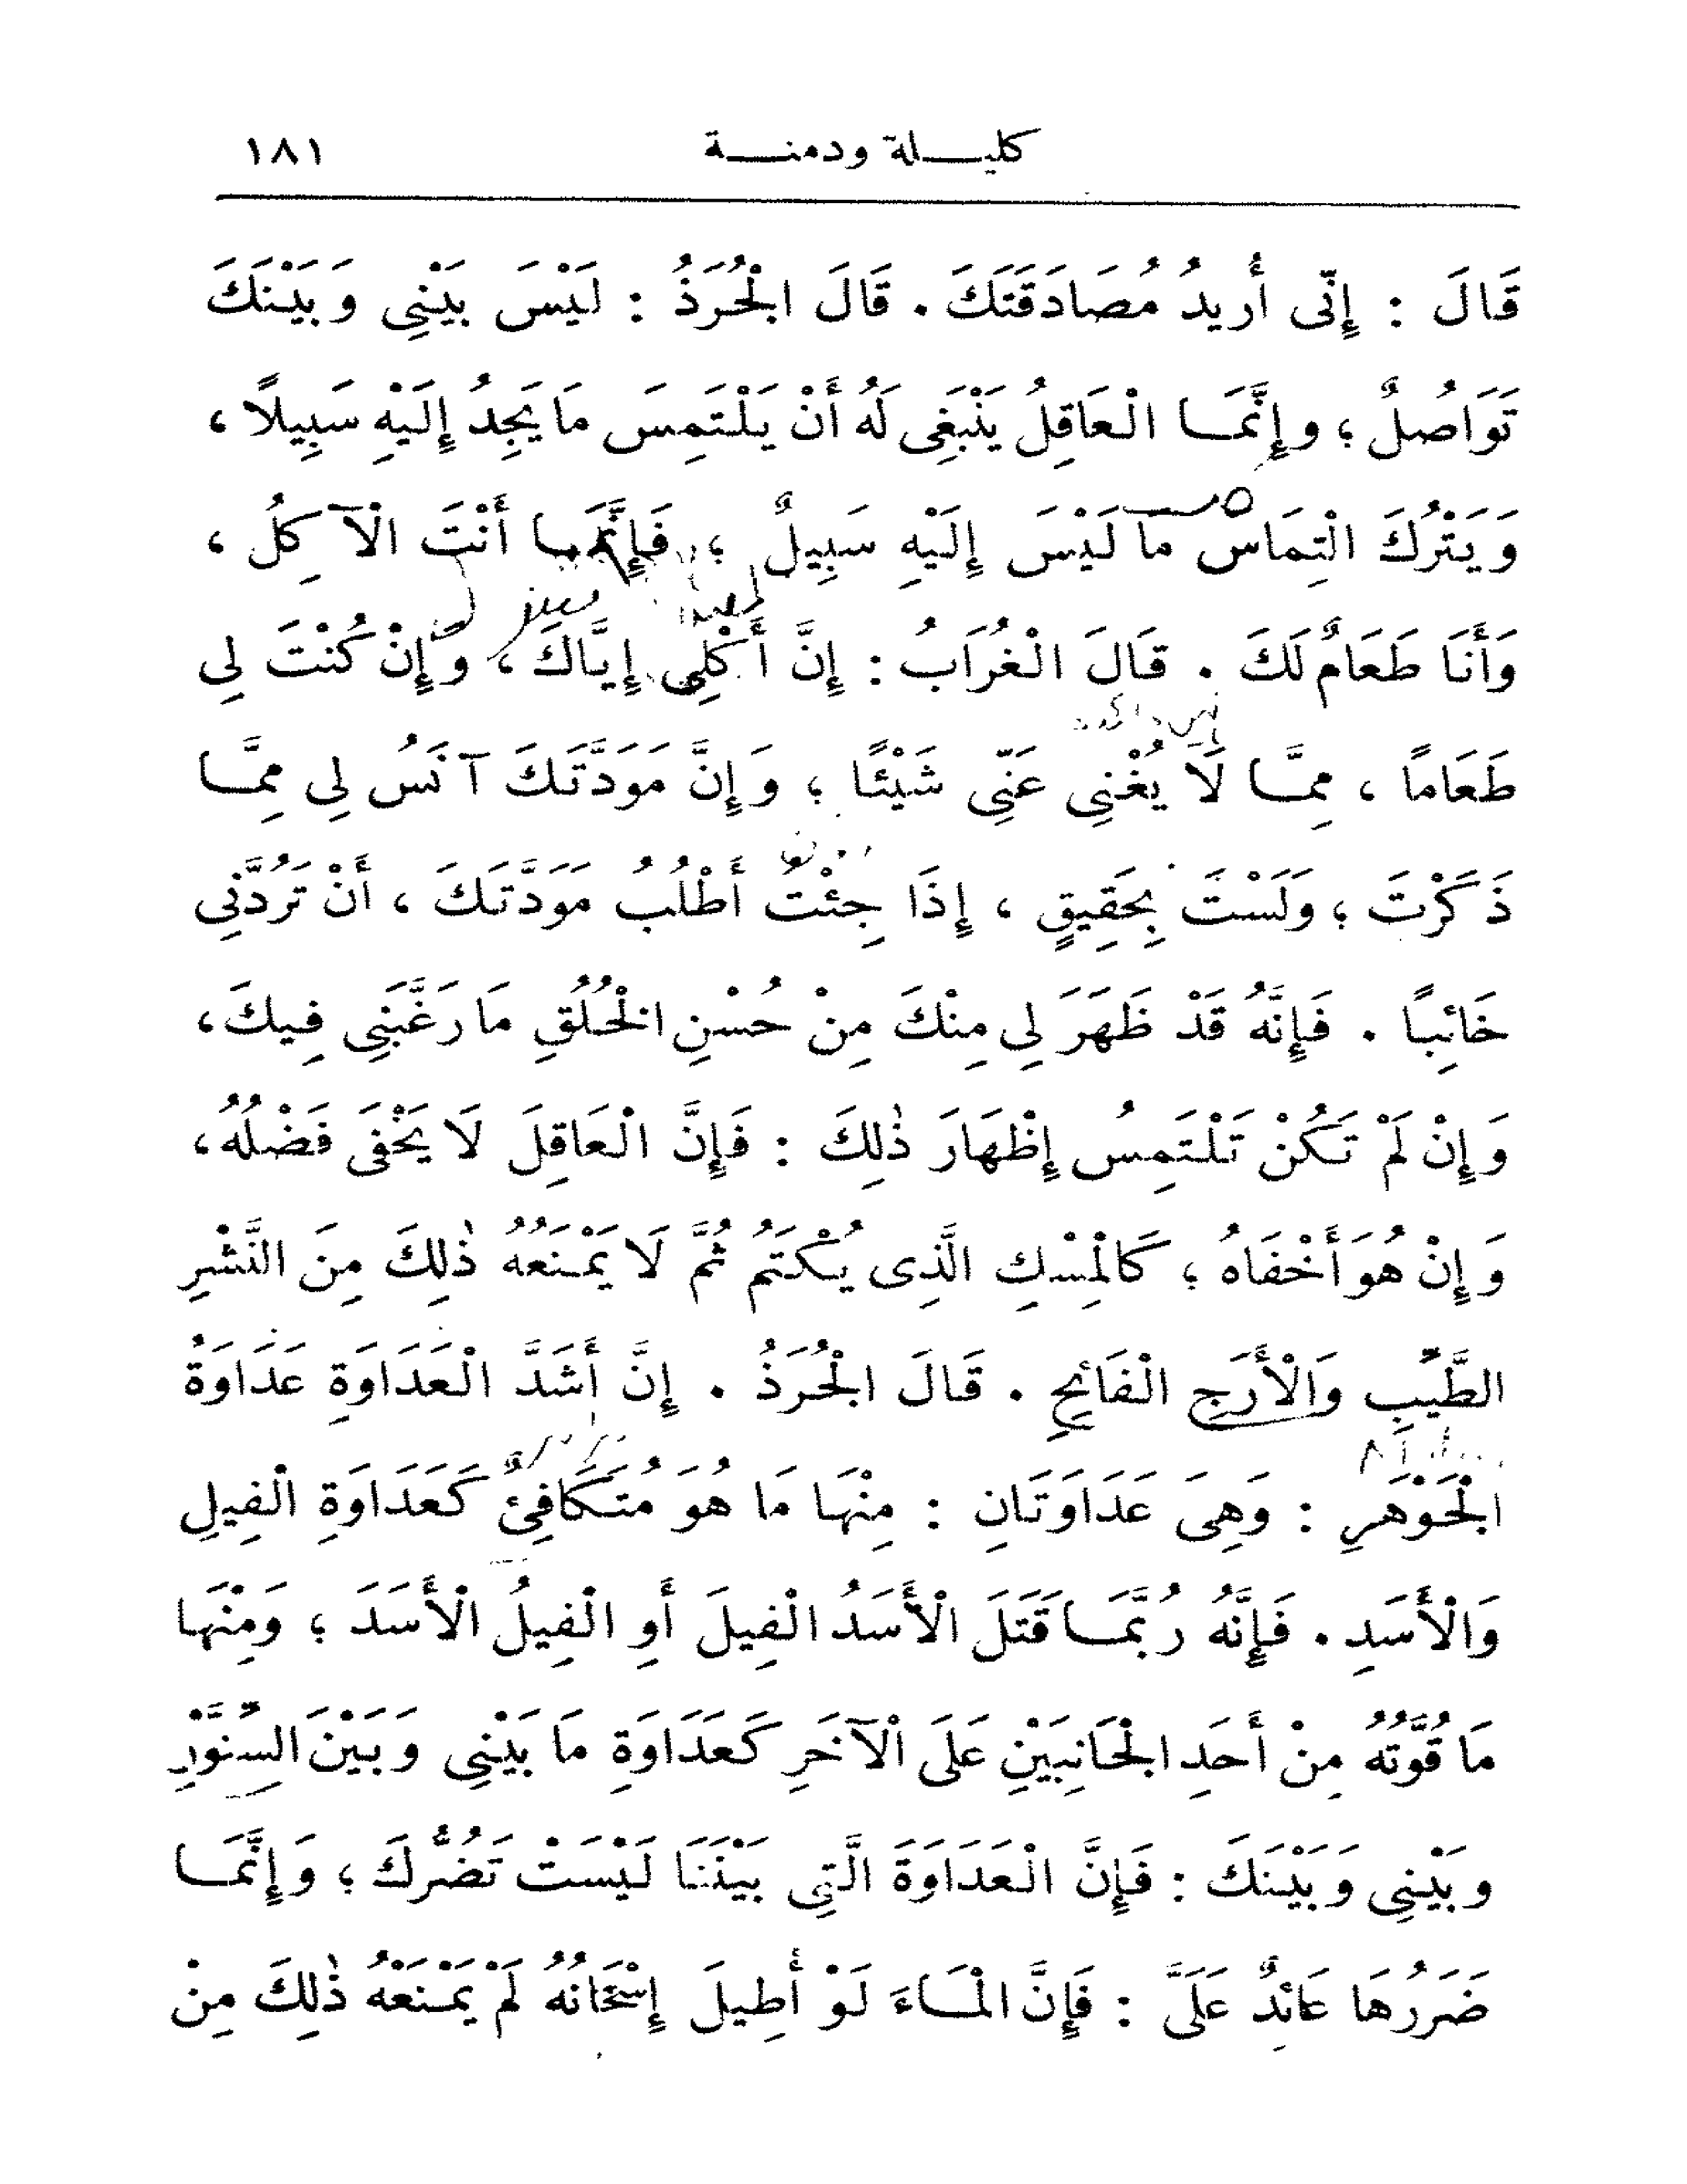 كليلة ودمنة ١٨١
قَالَ : إِنِّى أُرِيدُ مُصَادَقَتَكَ . قَالَ الْجُرَذُ : لَيْسَ بَيْنِى وَبَيْنَكَ
تَوَاصُلٌ ؛ وإِنَّمَا الْعَاقِلُ يَنْبَغِى لَهُ أَنْ يَلْتَمِسَ مَا يَجِدُ إِلَيْهِ سَبِيلًا ،
وَيَتْرُكَ الْتِمَاسَ مَا لَيْسَ إِلَيْهِ سَبِيلٌ ؛ فَإِنَّمَا أَنْتَ الْآكِلُ ،
وَأَنَا طَعَامٌ لَكَ . قَالَ الْغُرَابُ : إِنَّ أَكْلِى إِيَّاكَ ، وَإِنْ كُنْتَ لِى
طَعَاماً ، مِمَّا لَا يُغْنِى عَنِّى شَيْئًا ؛ وَإِنَّ مَوَدَّتَكَ آنَسُ لِى مِمَّا
ذَكَرْتَ ؛ وَلَسْتَ بِحَقِيقٍ ، إِذَا جِئْتُ أَطْلُبُ مَوَدَّتَكَ ، أَنْ تَرُدَّنِى
خَائِبًا . فَإِنَّهُ قَدْ ظَهَرَ لِى مِنْكَ مِنْ حُسْنِ الْخُلُقِ مَا رَغَّبَنِى فِيكَ ،
وَإِنْ لَمْ تَكُنْ تَلْتَمِسُ إِظْهَارَ ذٰلِكَ : فَإِنَّ الْعَاقِلَ لَا يَخْفَى فَضْلُهُ ،
وَإِنْ هُوَ أَخْفَاهُ ؛ كَالْمِسْكِ الَّذِى يُكْتَمُ ثُمَّ لَا يَمْنَعُهُ ذٰلِكَ مِنَ النَّشْرِ
الطَّيِّبِ وَالْأَرَجِ الْفَائِحِ . قَالَ الْجُرَذُ . إِنَّ أَشَدَّ الْعَدَاوَةِ عَدَاوَةُ
الْجَوْهَرِ : وَهِىَ عَدَاوَتَانِ : مِنْهَا مَا هُوَ مُتَكَافِئٌ كَعَدَاوَةِ الْفِيلِ
وَالْأَسَدِ . فَإِنَّهُ رُبَّمَا قَتَلَ الْأَسَدُ الْفِيلَ أَوِ الْفِيلُ الْأَسَدَ ؛ وَمِنْهَا
مَا قُوَّتُهُ مِنْ أَحَدِ الْجَانِبَيْنِ عَلَى الْآخَرِ كَعَدَاوَةِ مَا بَيْنِى وَبَيْنَ السِّنَّوْرِ
وبَيْنِى وَبَيْنَكَ : فَإِنَّ الْعَدَاوَةَ الَّتِى بَيْنَنَا لَيْسَتْ تَضُرُّكَ ؛ وَإِنَّمَا
ضَرَرُهَا عَائِدٌ عَلَىَّ : فَإِنَّ الْمَاءَ لَوْ أُطِيلَ إِسْخَانُهُ لَمْ يَمْنَعْهُ ذٰلِكَ مِنْ